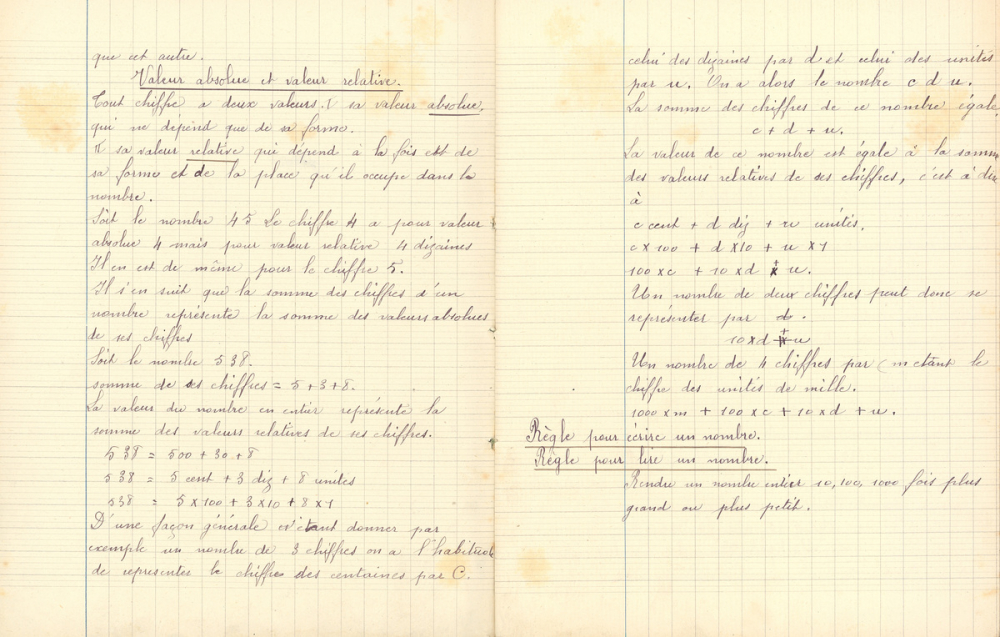 que cet autre.
Valeur absolue et valeur relative.
Tout chiffre a deux valeurs. 1 sa valeur absolue,
qui ne dépend que de sa forme.
sa valeur relative qui dépend à la fois est de
sa forme et de la place qu'il occupe dans le
nombre.
Soit le nombre 45 Le chiffre 4 a pour valeur
absolue 4 mais pour valeur relative 4 dizaines
Il en est de même pour le chiffre 5.
Il s'en suit que la somme des chiffres d'un
nombre représente la somme des valeurs absolues
de ses chiffres
Soit le nombre 538.
somme de ses chiffres = 5+3+8.
La valeur du nombre en entier représente la
somme des valeurs relatives de ses chiffres.
538 = 500 + 30 + 8
538 = 5 cent + 3 diz + 8 unités
538 = 5 x 100 + 3 x 10 + 8 x 1
D'une façon générale étant donner par
exemple un nombre de 3 chiffres on a l'habitude
de representer le chiffre des centaines par C.
celui des dizaines par d et celui des unités
par u. On a alors le nombre c d u.
La somme des chiffres de ce nombre égale
c + d + u.
La valeur de ce nombre est égale à la somme
des valeurs relatives de ses chiffres, c'est à dire
à
c cent + d diz + u unités.
c x 100 + d x 10 + u x 1
100 x c + 10 x d + u.
Un nombre de deux chiffres peut donc se
représenter par d.
10 x d + u
Un nombre de 4 chiffres par (m étant le
chiffre des unités de mille.
1000 x m + 100 x c + 10 x d + u.
Règle pour écrire un nombre.
Règle pour lire un nombre.
Rendre un nombre entier 10, 100, 1000 fois plus
grand ou plus petit.